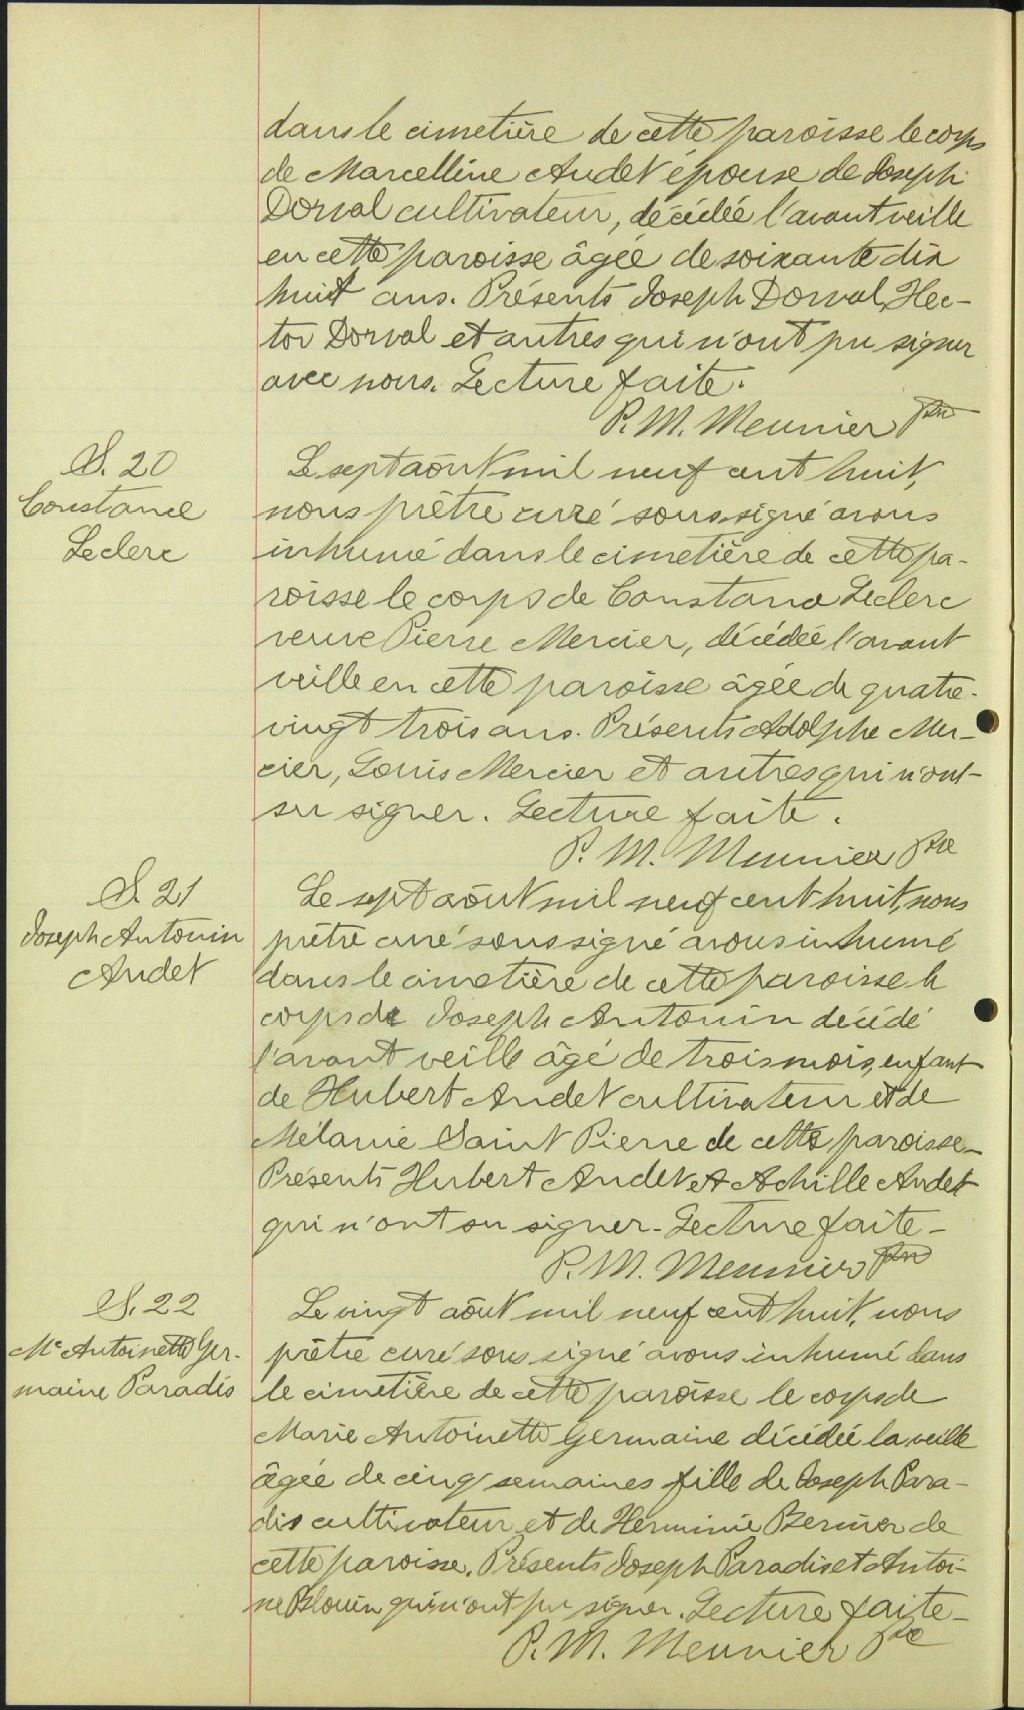 dans le cimetière de cette paroisse le corps
de Marcelline Audet épouse de Joseph
Dorval cultivateur, décédée l'avant veille
en cette paroisse âgée de soixante dix
huit ans. Présents Joseph Dorval, Hec-
tor Dorval et autres qui n'ont pu signer
avec nous. Lecture faite.
P. M. Meunier Ptre
S. 20
Constance
Leclerc
Le sept août mil neuf cent huit,
nous prêtre curé soussigné avons
inhumé dans le cimetière de cette pa-
roisse le corps de Constance Leclerc
veuve Pierre Mercier, décédée l'avant
veille en cette paroisse âgée de quatre-
vingt trois ans. Présents Adolphe Mer-
cier, Louis Mercier et autres qui n'ont
su signer. Lecture faite.
P. M. Meunier Ptre
S. 21
Joseph Antonin
Audet
Le sept août mil neuf cent huit, nous
prêtre curé soussigné avons inhumé
dans le cimetière de cette paroisse le
corps de Joseph Antonin décédé
l'avant veille âgé de trois mois, enfant
de Hubert Audet cultivateur et de
Mélanie Saint Pierre de cette paroisse-
Présents Hubert Audet et Achille Audet
qui n'ont su signer- Lecture faite-
P. M. Meunier Ptre
S. 22
Mie Antoinette Ger-
maine Paradis
Le vingt août mil neuf cent huit, nous
prêtre curé soussigné avons inhumé dans
le cimetière de cette paroisse le corps de
Marie Antoinette Germaine décédée la veille
âgée de cinq semaines fille de Joseph Para-
dis cultivateur et de Herminie Bernier de
cette paroisse. Présents Joseph Paradis et Antoi-
ne Blouin qui n'ont pu signer. Lecture faite-
P. M. Meunier Ptre